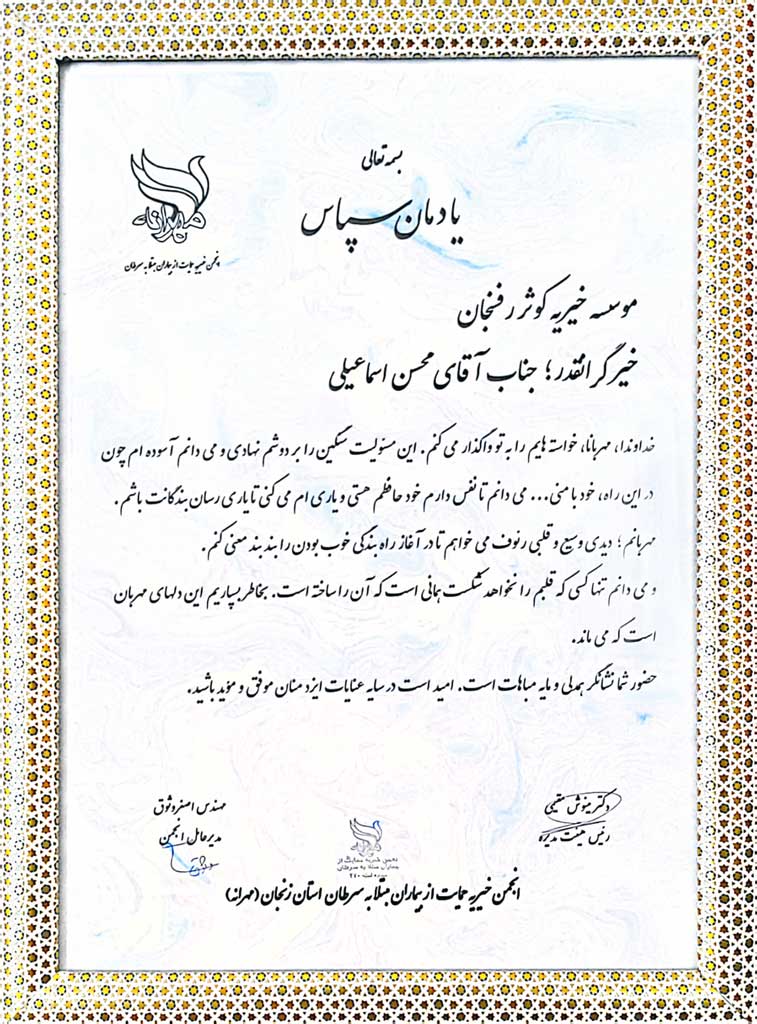 بسمه تعالی
یادمان سپاس
مهرانه
انجمن خیریه حمایت از بیماران مبتلا به سرطان
موسسه خیریه کوثر رفسنجان
خیر گرانقدر؛ جناب آقای محسن اسماعیلی
خداوندا، مهربانا، خواسته هایم را به تو واگذار می کنم. این مسئولیت سنگین را بر دوشم نهادی و می دانم آسوده ام چون
در این راه، خود با منی... می دانم تا نفس دارم خود حافظم هستی و یاری ام می کنی تا یاری رسان بندگانت باشم.
مهربانم؛ دیدی وسیع و قلبی رئوف می خواهم تا در آغاز راه بندگی خوب بودن را بند بند معنی کنم.
و می دانم تنها کسی که قلبم را نخواهد شکست همانی است که آن را ساخته است. بخاطر بسپاریم این دلهای مهربان
است که می ماند.
حضور شما نشانگر همدلی و مایه مباهات است. امید است در سایه عنایات ایزد منان موفق و مؤید باشید.
دکتر مینوش مقیمی
رئیس هیئت مدیره
مهندس اصغر وثوق
مدیرعامل انجمن
انجمن خیریه حمایت از
بیماران مبتلا به سرطان
انجمن خیریه حمایت از بیماران مبتلا به سرطان استان زنجان (مهرانه)